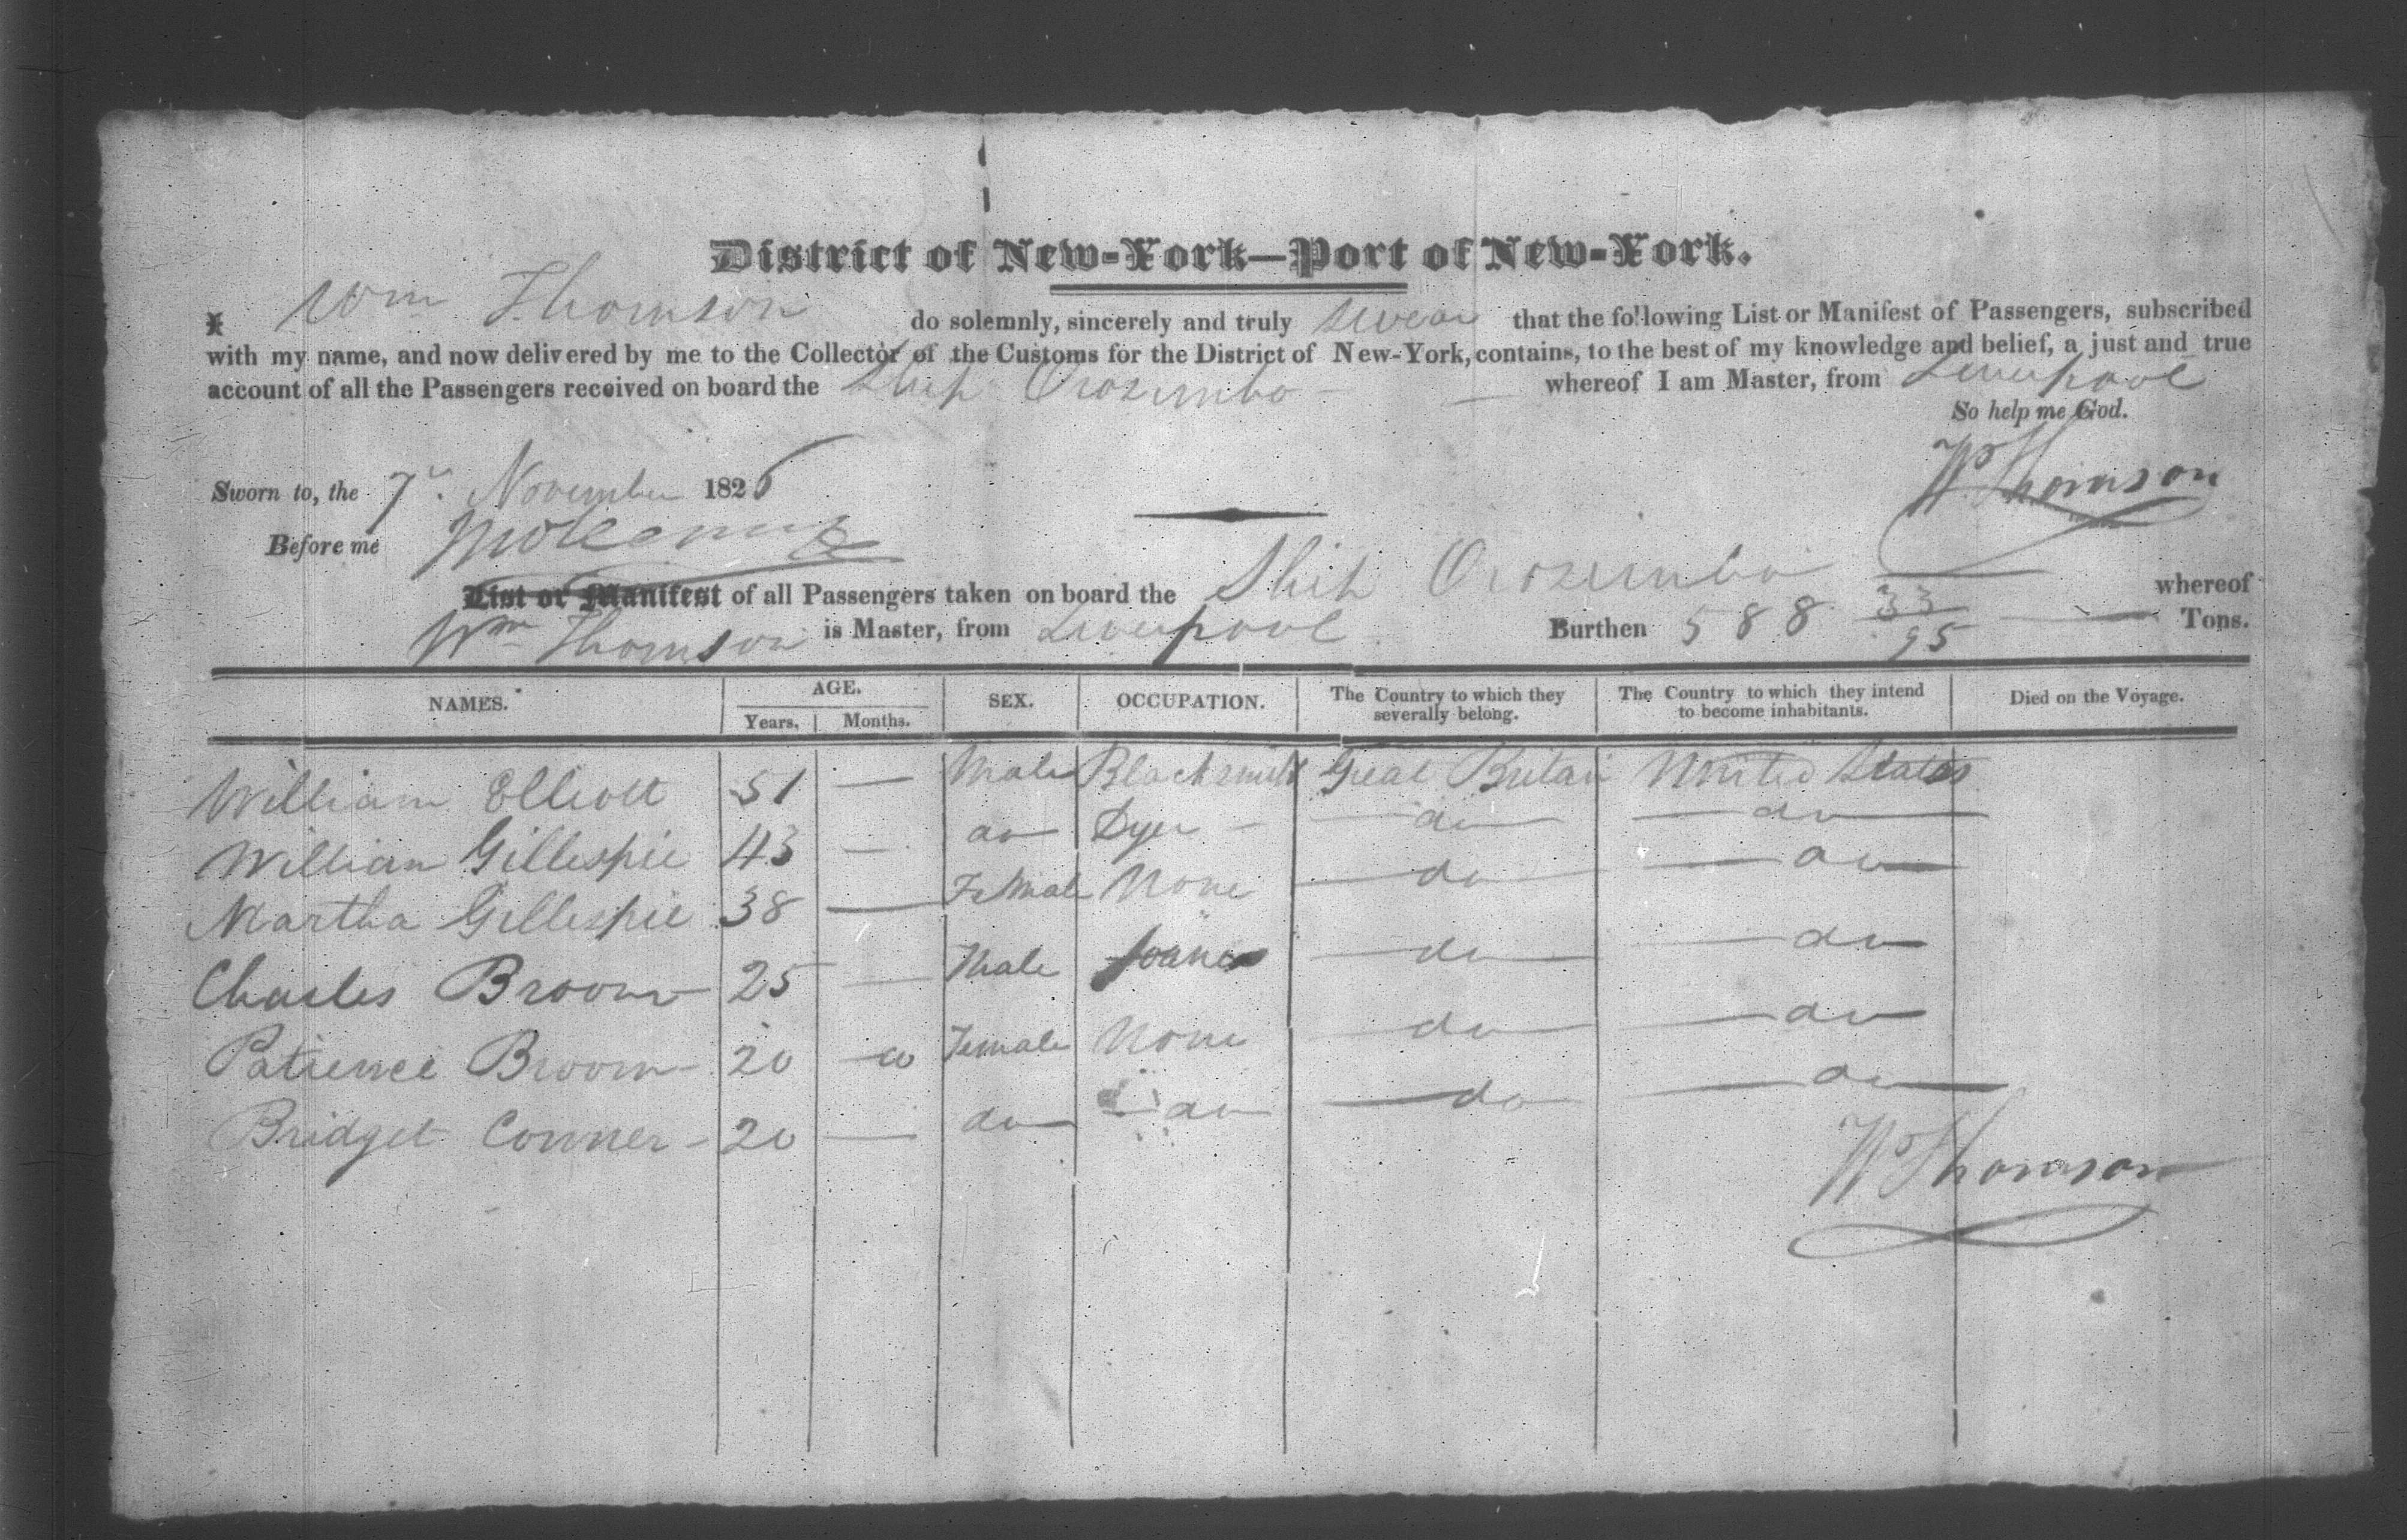 District of New-York—Port of New-York.
I Wm Thomson do solemnly, sincerely and truly swear that the following List or Manifest of Passengers, subscribed
with my name, and now delivered by me to the Collector of the Customs for the District of New-York, contains, to the best of my knowledge and belief, a just and true
account of all the Passengers received on board the Ship Orozimbo whereof I am Master, from Liverpool
So help me God.
Wm Thomson
Sworn to, the 7th November 1826
Before me
List or Manifest of all Passengers taken on board the Ship Orozimbo whereof
Wm Thomson is Master, from Liverpool Burthen 588 33/95 Tons.
NAMES. AGE. SEX. OCCUPATION. The Country to which they severally belong. The Country to which they intend to become inhabitants. Died on the Voyage.
Years. Months.
William Elliott 51 — Male Blacksmith Great Britain United States
William Gillespie 43 — do Dyer — do — do
Martha Gillespie 38 — Female None — do — do
Charles Broom 25 — Male — do — do
Patience Broom 20 — Female None — do — do
Bridget Conner 20 — do — do — do — do
Wm Thomson